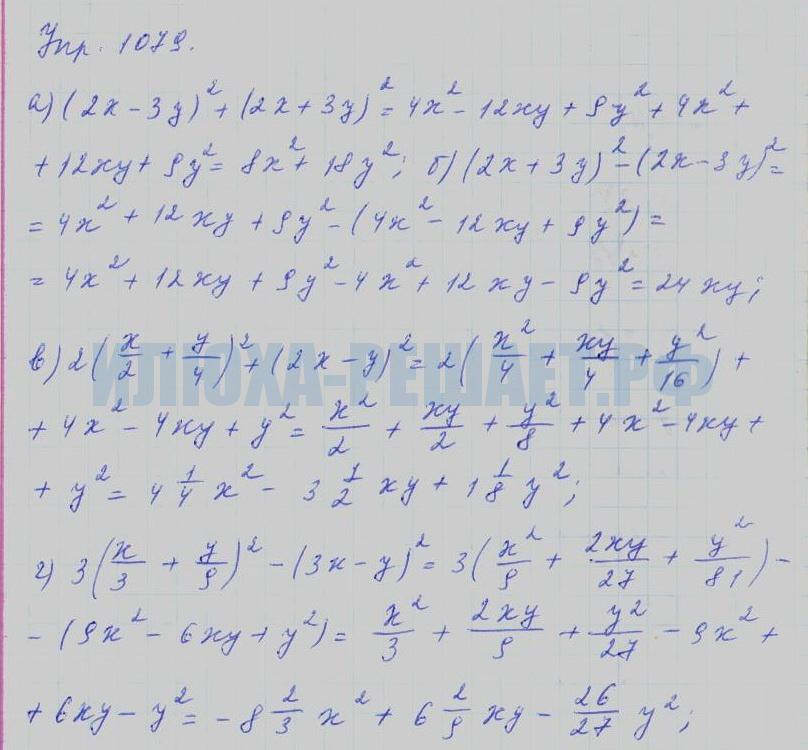 Упр. 1079.
а) (2x - 3y)² + (2x + 3y)² = 4x² - 12xy + 9y² + 4x² +
+ 12xy + 9y² = 8x² + 18y²; б) (2x + 3y)² - (2x - 3y)² =
= 4x² + 12xy + 9y² - (4x² - 12xy + 9y²) =
= 4x² + 12xy + 9y² - 4x² + 12xy - 9y² = 24xy;
в) 2(x/2 + y/4)² + (2x - y)² = 2(x²/4 + xy/4 + y²/16) +
ИЛЮХА-РЕШАЕТ.РФ
+ 4x² - 4xy + y² = x²/2 + xy/2 + y²/8 + 4x² - 4xy +
+ y² = 4 1/4 x² - 3 1/2 xy + 1 1/8 y²;
г) 3(x/3 + y/9)² - (3x - y)² = 3(x²/9 + 2xy/27 + y²/81) -
- (9x² - 6xy + y²) = x²/3 + 2xy/9 + y²/27 - 9x² +
+ 6xy - y² = -8 2/3 x² + 6 2/9 xy - 26/27 y²;